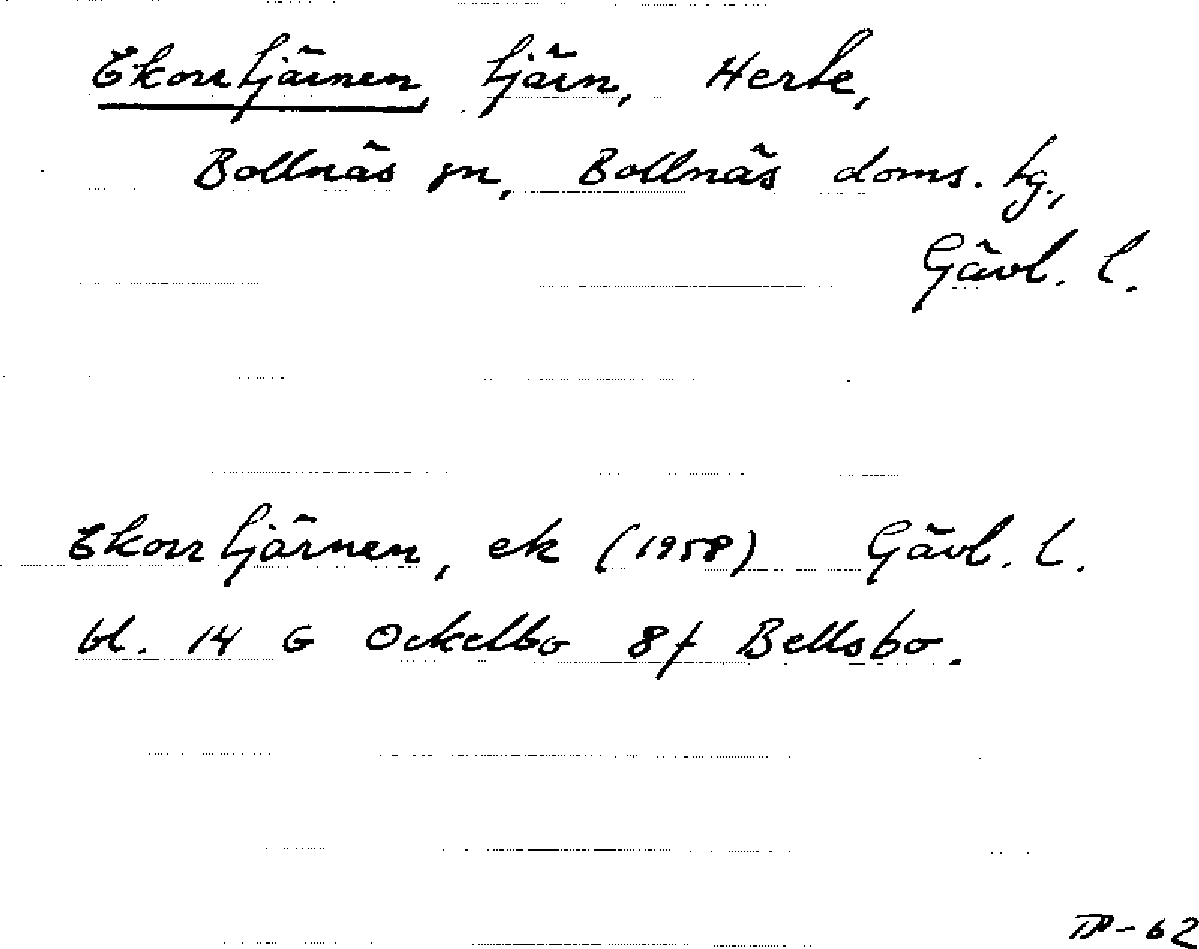 Ekorrtjärnen, tjärn, Herte,
Bollnäs sn, Bollnäs doms. tg.,
Gävl. l.
Ekorrtjärnen, ek (1958) Gävl. l.
bl. 14 G Ockelbo 8f Bellsbo.
-62